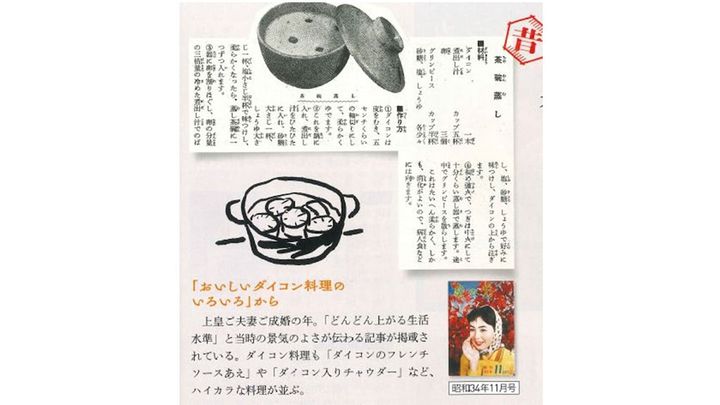 昔
茶碗蒸し
■材料
ダイコン 一本
煮出し汁 カップ五杯
卵 三個
グリンピース カップ半杯
砂糖、塩、しょうゆ 各少々
茶碗蒸し
■作り方
①ダイコンは
皮をむき、五
センチぐらい
の輪切りにし
て、柔らかく
ゆでます。
②これを鍋に
入れ、煮出し
汁をひたひた
に入れ、砂糖
大さじ一杯、
しょうゆ大さ
じ一杯、塩小さじ半杯で味つけし、
柔らかくなったら、蒸し茶碗に一
つずつ入れます。
③器に卵を割りほぐし、卵の分量
の三倍量の冷めた煮出し汁でのば
し、塩、砂糖、しょうゆで好みに
味つけし、ダイコンの上から注ぎ
ます。
④初め強火で、つぎは中火にして
十分くらい蒸し器で蒸します。途
中でグリンピースを散らします。
これはたいへん柔らかく、しか
も、消化がよいので、病人食など
には向きます。
「おいしいダイコン料理の
いろいろ」から
上皇ご夫妻ご成婚の年。「どんどん上がる生活
水準」と当時の景気のよさが伝わる記事が掲載さ
れている。ダイコン料理も「ダイコンのフレンチ
ソースあえ」や「ダイコン入りチャウダー」など、
ハイカラな料理が並ぶ。
11
昭和34年11月号